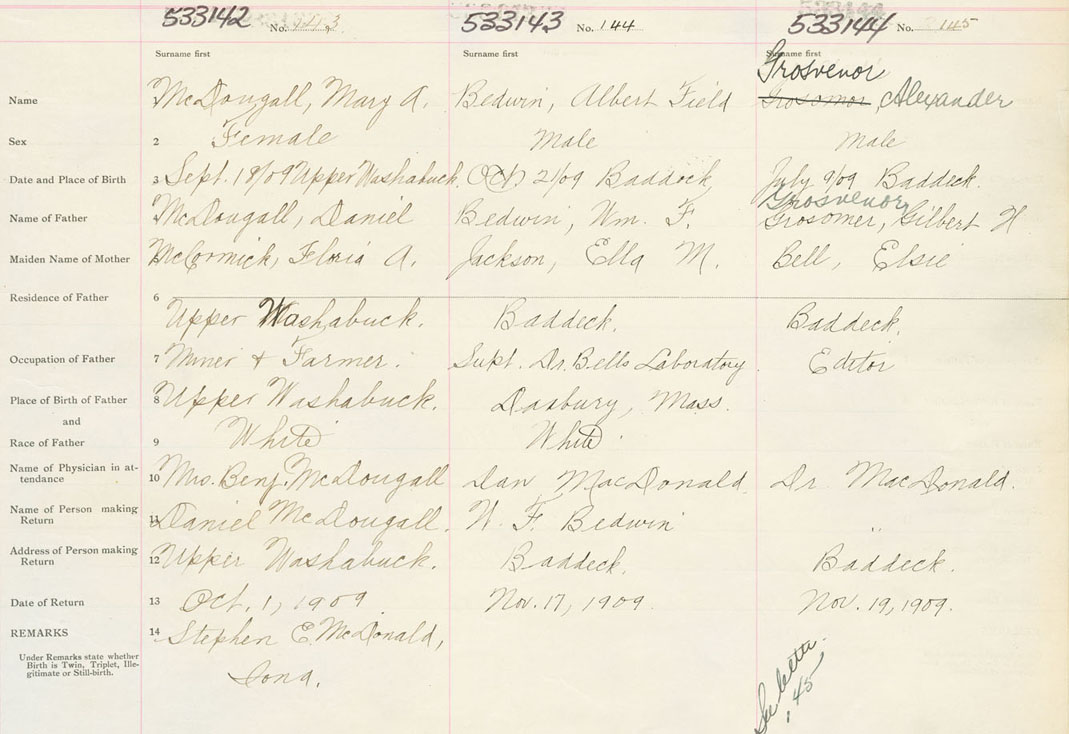 533142 No. 143 533143 No. 144 533144 No. 145
Surname first Surname first Surname first
Grosvenor
Name McDougall, Mary A. Bedwin, Albert Field Grosomor, Alexander
Sex 2 Female Male Male
Date and Place of Birth 3 Sept. 18/09 Upper Washabuck. Oct 21/09 Baddeck, July 9/09 Baddeck.
Grosvenor
Name of Father McDougall, Daniel Bedwin, Wm. F. Grosomer, Gilbert H
Maiden Name of Mother McCormick, Floria A. Jackson, Ella M. Bell, Elsie
Residence of Father 6
Upper Washabuck. Baddeck. Baddeck.
Occupation of Father 7 Miner + Farmer. Supt. Dr. Bells Laboratory. Editor
Place of Birth of Father 8 Upper Washabuck. Daxbury, Mass.
and
Race of Father 9 White White
Name of Physician in at-
tendance 10 Mrs. Benj. McDougall Dan MacDonald. Dr. MacDonald.
Name of Person making
Return 11 Daniel McDougall. W. F. Bedwin "
Address of Person making
Return 12 Upper Washabuck. Baddeck. Baddeck.
Date of Return 13 Oct. 1, 1909 Nov. 17, 1909. Nov. 19, 1909.
REMARKS 14 Stephen E. McDonald,
Under Remarks state whether
Birth is Twin, Triplet, Ille-
gitimate or Still-birth.
Iona.
See letter
145